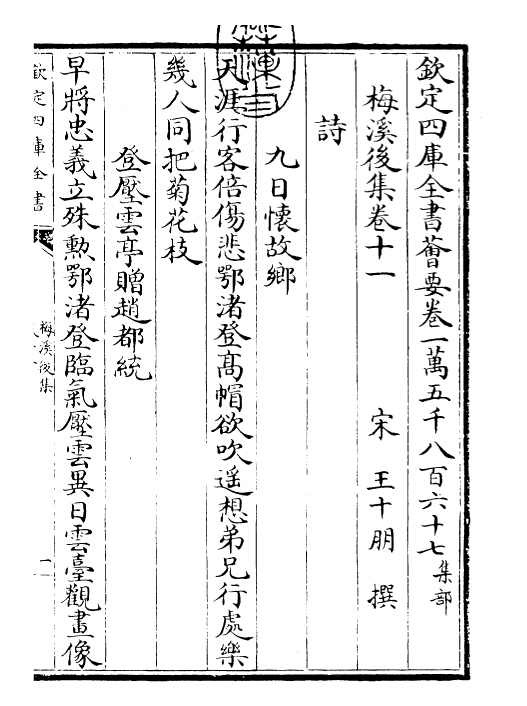 欽定四庫全書薈要卷一萬五千八百六十七 集部
梅溪後集卷十一 宋 王十朋 撰
詩
九日懷故鄉
天涯行客倍傷悲鄂渚登髙帽欲吹遥想弟兄行處樂
幾人同把菊花枝
登壓雲亭贈趙都統
早將忠義立殊勲鄂渚登臨氣壓雲異日雲臺觀畫像
欽定四庫全書
梅溪後集
一